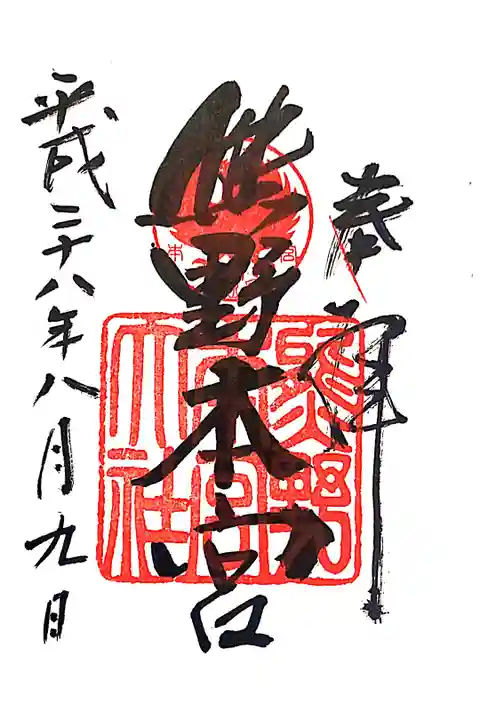 奉拝
熊野本宮
熊野本宮大社
平成二十八年八月九日